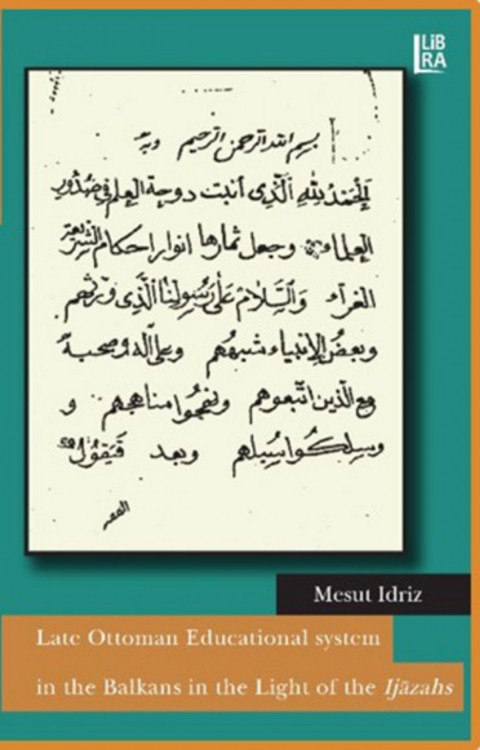 LiBRA
بسم الله الرحمن الرحيم وبه
الحمد لله الذي أنبت دوحة العلم في صدور
العلماء وجعل ثمارها انوار احكام الشريعة
الغراء والسلام على رسولنا الذي ورثهم
وبعض الانبياء شبههم وعلى اله وصحبه
مع الذين اتبعوهم ونهجوا مناهجهم و
وسلكوا سبيلهم وبعد فيقول
الفقير
Mesut Idriz
Late Ottoman Educational system
in the Balkans in the Light of the Ijāzahs